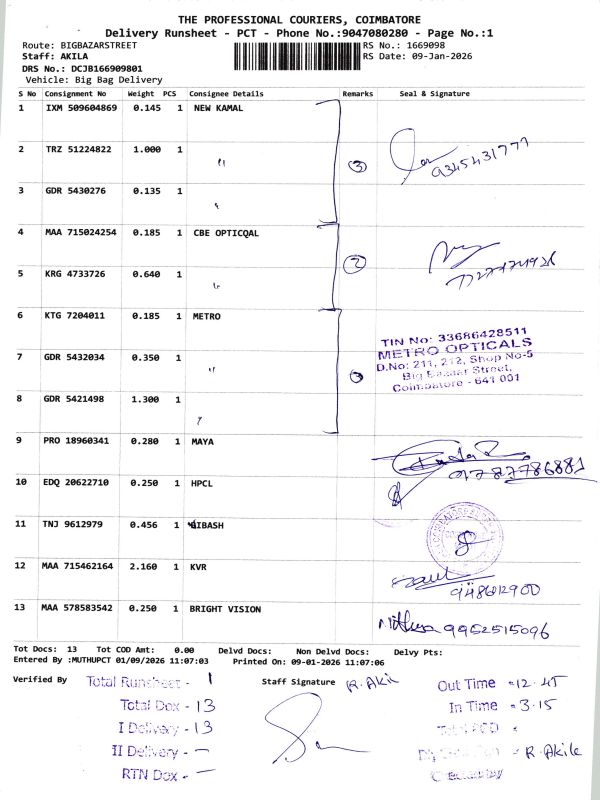 THE PROFESSIONAL COURIERS, COIMBATORE
Delivery Runsheet - PCT - Phone No.:9047080280 - Page No.:1
Route: BIGBAZARSTREET
RS No.: 1669098
Staff: AKILA
RS Date: 09-Jan-2026
DRS No.: DCJB166909801
Vehicle: Big Bag Delivery
S No Consignment No Weight PCS Consignee Details Remarks Seal & Signature
1 IXM 509604869 0.145 1 NEW KAMAL
2 TRZ 51224822 1.000 1 " 3
9345431777
3 GDR 5430276 0.135 1 "
4 MAA 715024254 0.185 1 CBE OPTICQAL
2
5 KRG 4733726 0.640 1 "
6 KTG 7204011 0.185 1 METRO
TIN No: 33686428511
METRO OPTICALS
7 GDR 5432034 0.350 1 " 3
D.No: 211, 212, Shop No-5
Big Bazaar Street,
Coimbatore - 641 001
8 GDR 5421498 1.300 1 "
9 PRO 18960341 0.280 1 MAYA
9787786881
10 EDQ 20622710 0.250 1 HPCL
11 TNJ 9612979 0.456 1 DIBASH
12 MAA 715462164 2.160 1 KVR
9486012900
13 MAA 578583542 0.250 1 BRIGHT VISION
Mithusa 9952515096
Tot Docs: 13 Tot COD Amt: 0.00 Delvd Docs: Non Delvd Docs: Delvy Pts:
Entered By :MUTHUPCT 01/09/2026 11:07:03 Printed On: 09-01-2026 11:07:06
Verified By Total Runsheet - 1 Staff Signature R. Akil Out Time - 12.45
Total Dox - 13 In Time - 3.15
I Delivery - 13 Total POD -
II Delivery - — R. Akila
RTN Dox - — Checked by